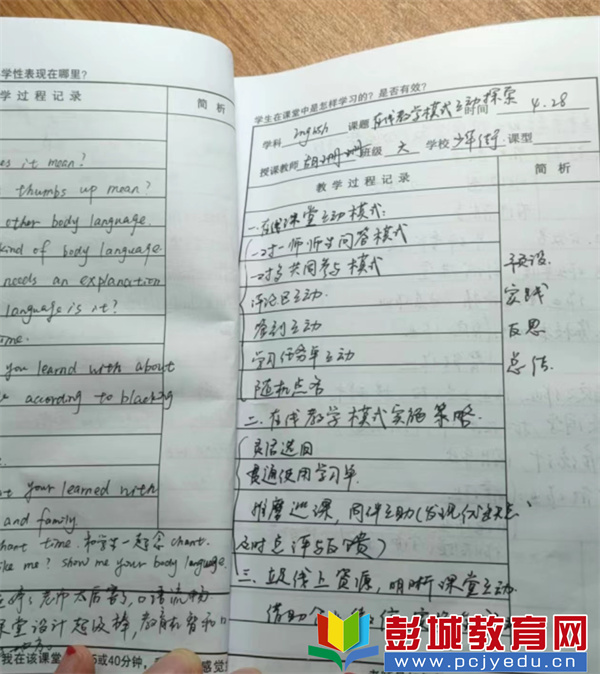 学性表现在哪里?
学过程记录
简析
es it mean?
thumbs up mean?
other body language.
kind of body language
needs an explanation
language is it?
ime.
you learnd with about
according to blacking
t your learned with
and family
chant time. 和学生一起念 chant.
ike me? show me your body language.
我在该课堂
5或40分钟,
感觉
学生在课堂中是怎样学习的?是否有效?
学科 English 课题 在线教学模式互动探索 时间 4.28
授课教师 班级 大 学校 少年街 课型
教学过程记录 简析
一.在线课堂互动模式:
一对一师生问答模式
一对多共同参与模式
评论区互动
签到互动
学习任务单互动
随机点名
预设
实践
反思
总结
二.在线教学模式实施策略.
灵活选用
贯通使用学习单
推磨巡课,同伴互助(发现优
及时点评与反馈)
三.立足线上资源,明晰课堂互动
借助
彭城教育网
www.pcjyedu.cn